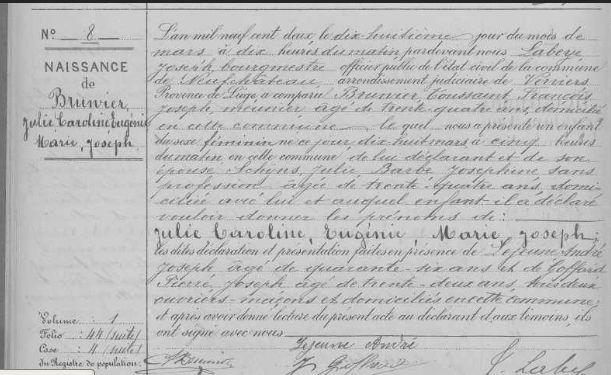 N° 8
NAISSANCE
de
Brunier,
Julie Caroline Eugénie
Marie, Joseph
L'an mil neuf cent deux le dix huitième jour du mois de
mars à dix heures du matin pardevant nous Laberse
Joseph, bourgmestre officier public de l'état civil de la commune
de Neufchâteau, arrondissement judiciaire de Verviers,
Province de Liége a comparu Brunier, Toussaint, François,
Joseph, meunier âgé de trente-quatre ans, domicilié
en cette commune lequel nous a présenté un enfant
du sexe féminin né ce jour dix huit mars à cinq heures
du matin en cette commune de lui déclarant et de son
épouse Schyns, Julie Barbe Joséphine sans
profession âgée de trente-quatre ans, domi-
ciliée avec lui et auquel enfant il a déclaré
vouloir donner les prénoms de :
Julie Caroline, Eugénie, Marie, Joseph;
les dites déclaration et présentation faites en présence de Lejeune André
Joseph âgé de quarante-six ans et de Goffard
Pierre, Joseph âgé de trente-deux ans, tous deux
ouvriers-maçons et domiciliés en cette commune;
et après avoir donné lecture du présent acte au déclarant et aux témoins, ils
ont signé avec nous
Lejeune André
Volume : 1
Folio : 44 (suite)
Case : 4 (suite)
du Registre de population.